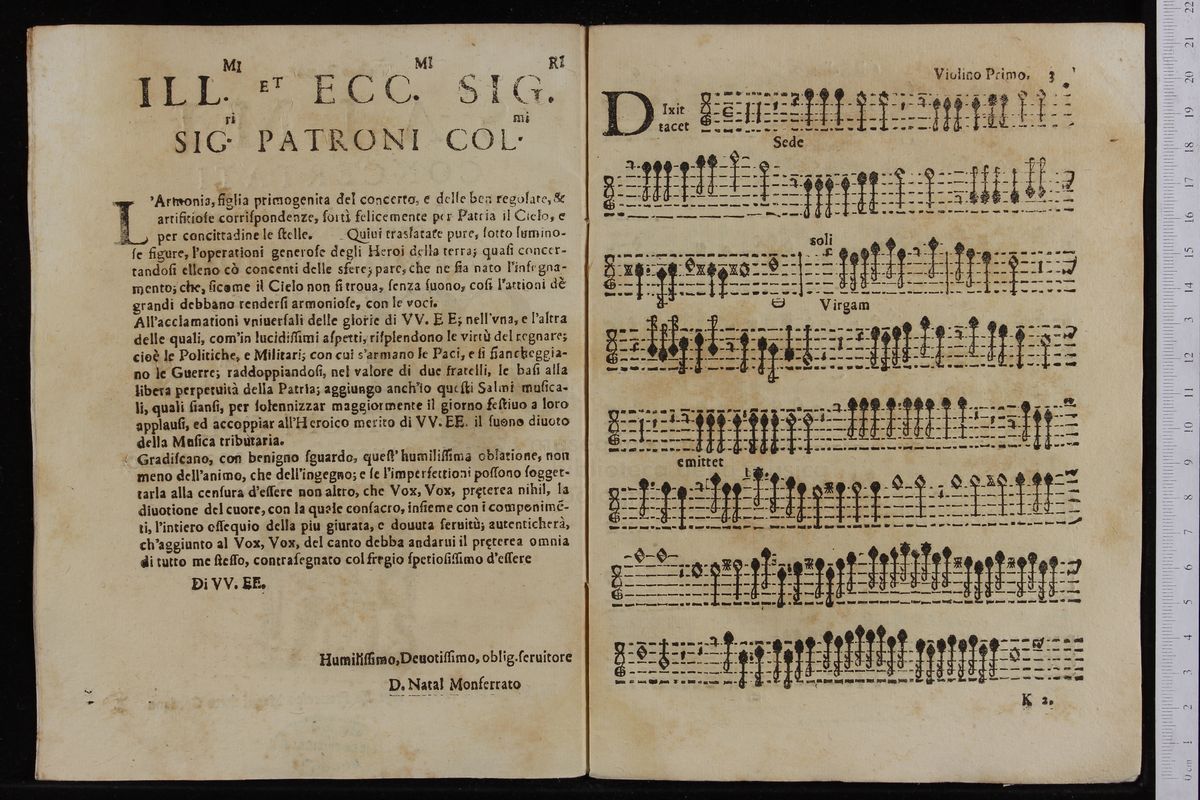 ILL.MI ET ECC.MI SIG.RI
SIG.ri PATRONI COL.mi
L'Armonia, figlia primogenita del concerto, e delle ben regolate, &
artifitiose corrispondenze, sortì felicemente per Patria il Cielo, e
per concittadine le stelle. Quiui traslatate pure, sotto lumino-
se figure, l'operationi generose degli Heroi della terra; quasi concer-
tandosi elleno cõ concenti delle sfere; pare, che ne sia nato l'insegna-
mento; che, sicome il Cielo non si troua, senza suono, così l'attioni dè
grandi debbano rendersi armoniose, con le voci.
All'acclamationi vniuersali delle glorie di VV. E E; nell'vna, e l'altra
delle quali, com'in lucidissimi aspetti, risplendono le virtù del regnare;
cioè le Politiche, e Militari; con cui s'armano le Paci, e si fiancheggia-
no le Guerre; raddoppiandosi, nel valore di due fratelli, le basi alla
libera perpetuità della Patria; aggiungo anch'io questi Salmi musica-
li, quali siansi, per solennizzar maggiormente il giorno festiuo a loro
applausi, ed accoppiar all'Heroico merito di VV. EE. il suono diuoto
della Musica tributaria.
Gradiscano, con benigno sguardo, quest'humilissima oblatione, non
meno dell'animo, che dell'ingegno; e se l'imperfettioni possono sogget-
tarla alla censura d'essere non altro, che Vox, Vox, pręterea nihil, la
diuotione del cuore, con la quale consacro, insieme con i componimē-
ti, l'intiero ossequio della piu giurata, e douuta seruitù; autenticherà,
ch'aggiunto al Vox, Vox, del canto debba andarui il pręterea omnia
di tutto me stesso, contrasegnato col fregio spetiosissimo d'essere
Di VV. EE.
Humilissimo, Deuotissimo, oblig. seruitore
D. Natal Monferrato
Violino Primo. 3
DIxit
tacet
Sede
soli
Virgam
emittet
K 2.